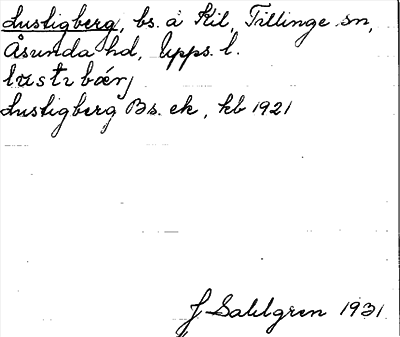 Lustigberg, bs. å Kil, Tillinge sn,
Åsunda hd, Upps. l.
lustɩ bærj
Lustigberg Bs. ek, kb 1921
J Sahlgren 1931